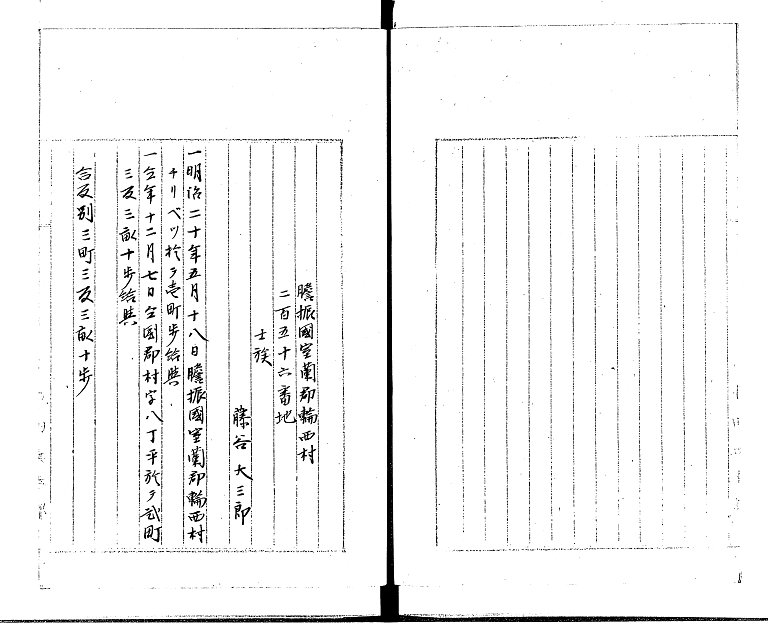 膽振國室蘭郡輪西村
二百五十六番地
士族
藤谷大三郎
一明治二十年五月十八日膽振國室蘭郡輪西村
チリベツ於テ壱町歩給與
一仝年十二月七日仝國郡村字八丁平於テ弐町
三反三畝十歩給與
合反別三町三反三畝十歩